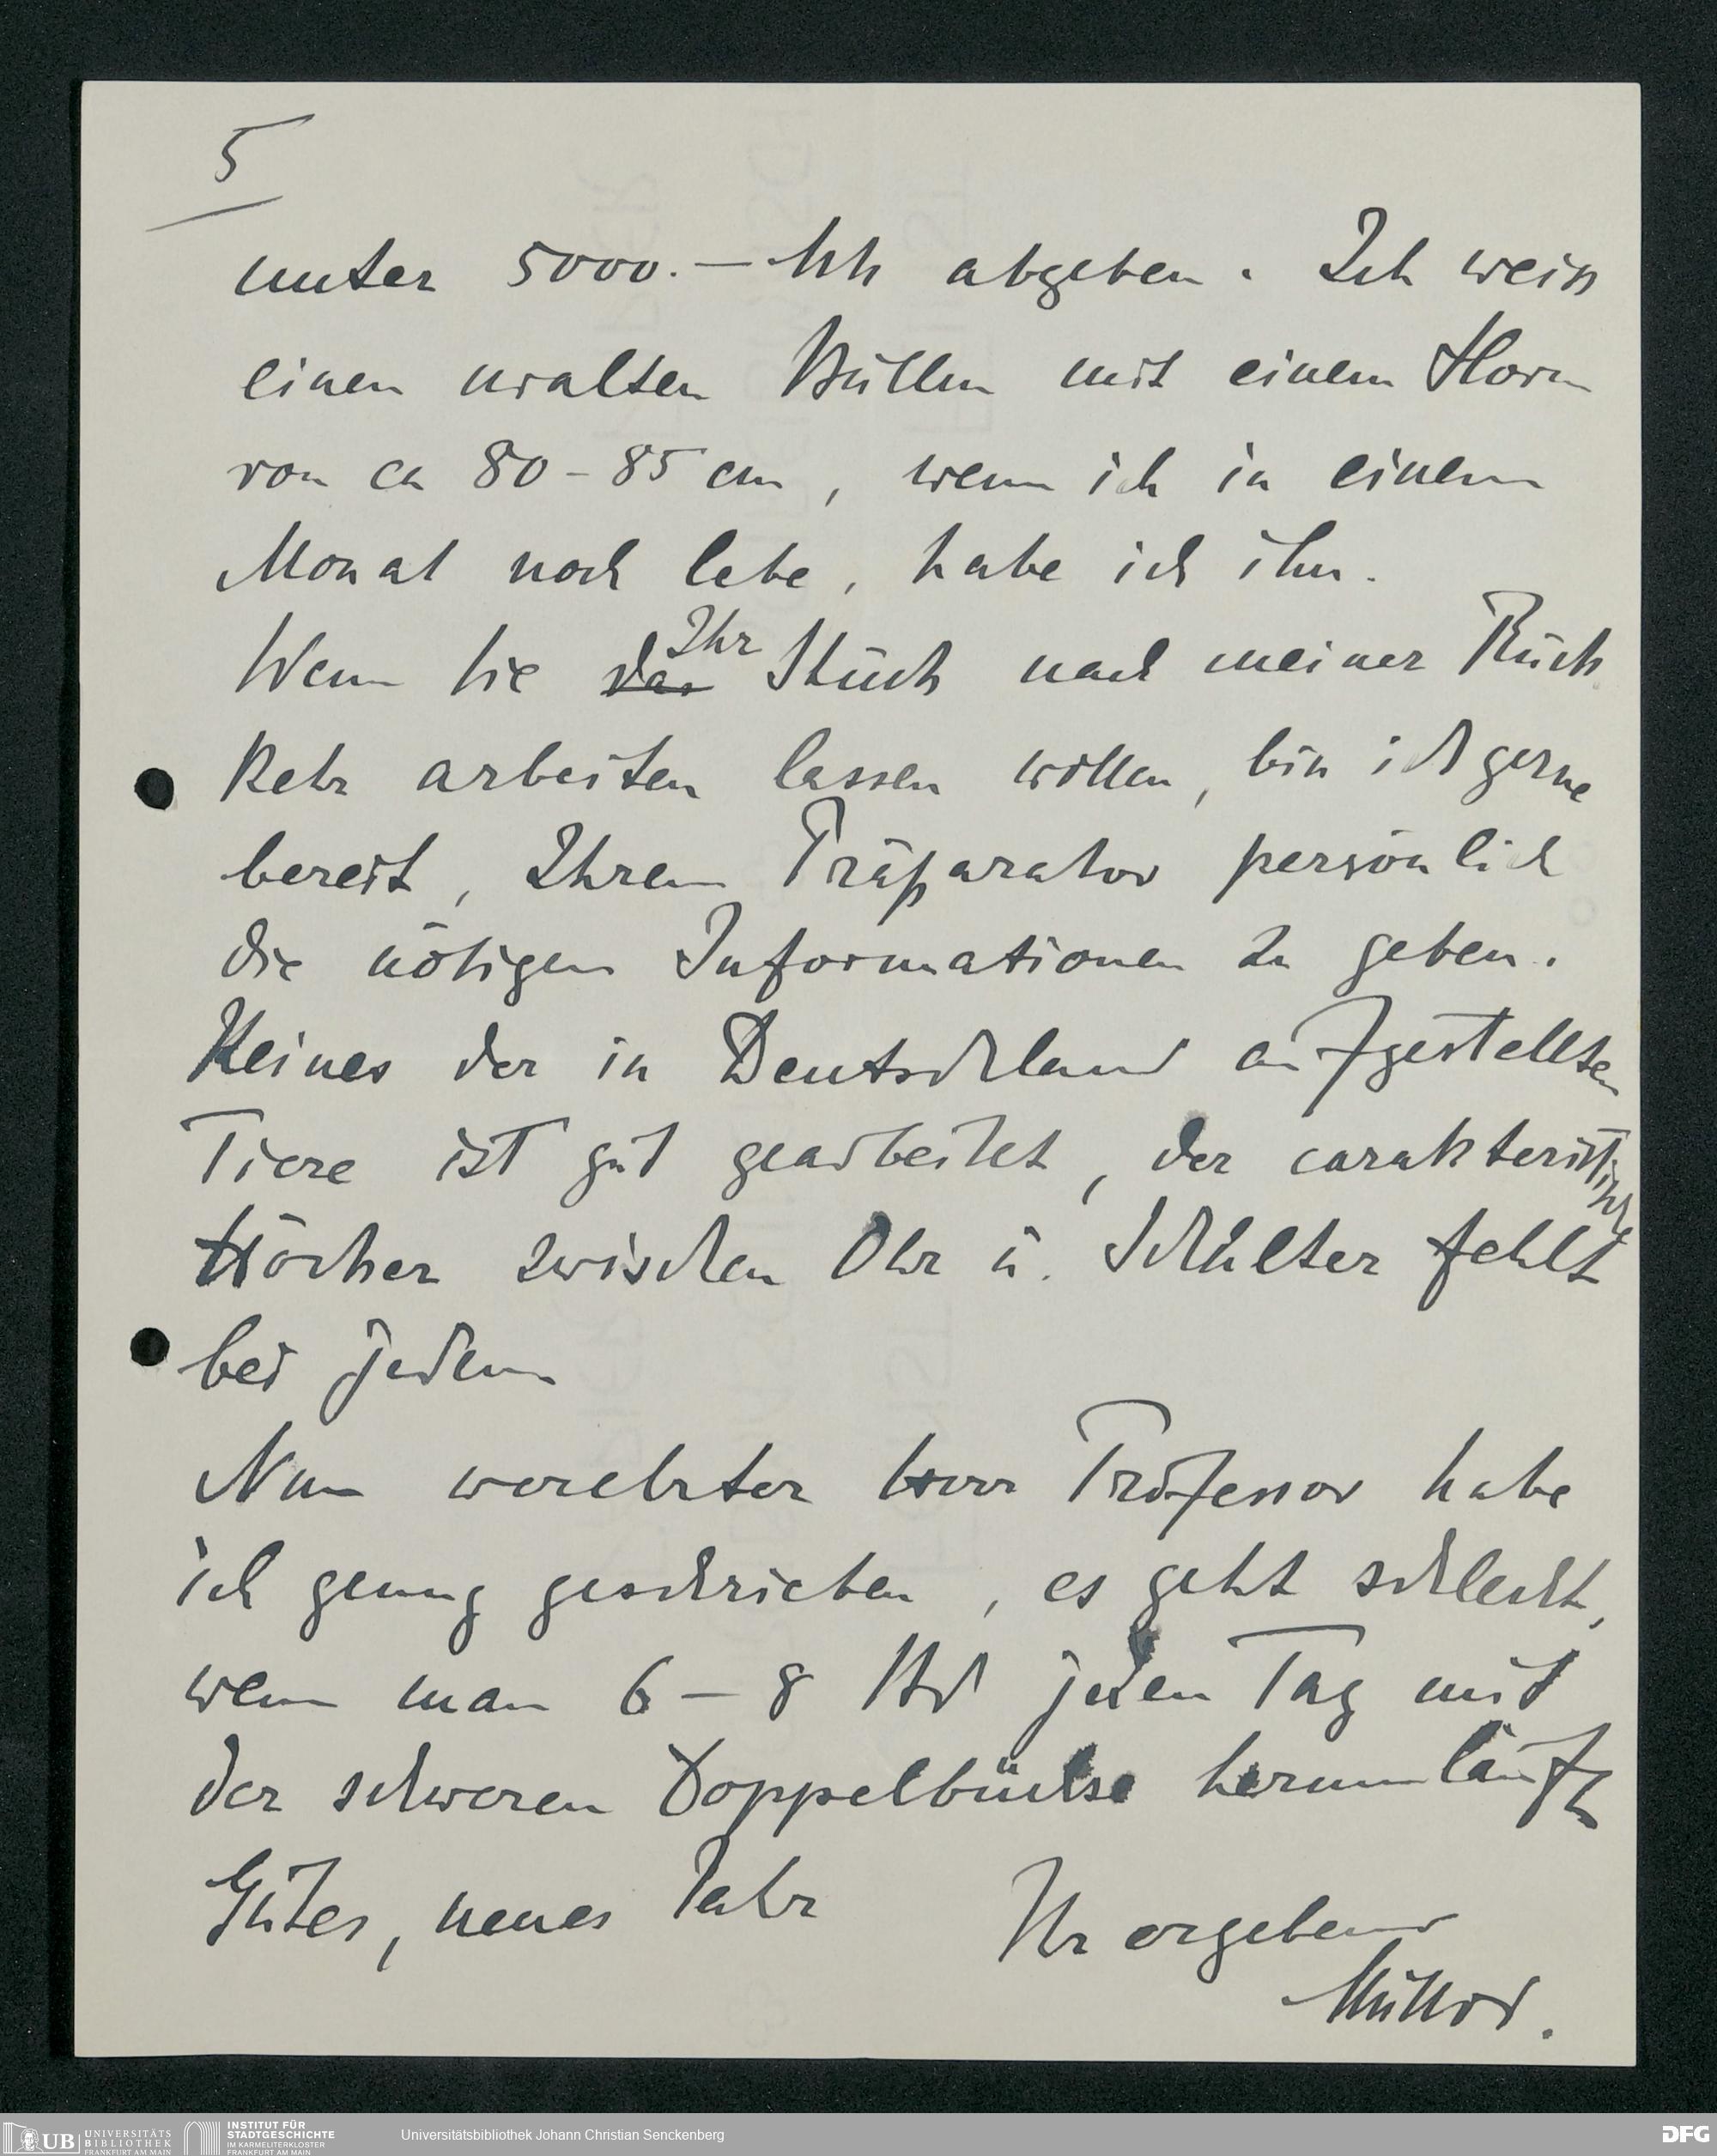 5
unter 5000.— Mk abgeben. Ich weiss
einen uralten Bullen mit einem Horn
von ca 80-85 cm, wenn ich in einem
Monat noch lebe, habe ich ihn.
Wenn Sie das Ihr Stück nach meiner Rück
kehr arbeiten lassen wollen, bin ich gerne
bereit, Ihrem Präparator persönlich
die nötigen Informationen zu geben.
Keines der in Deutschland aufgestellten
Tiere ist gut gearbeitet, der carakteristische
Höcker zwischen Ohr u. Schulter fehlt
bei jedem
Nun verehrter Herr Professor habe
ich genug geschrieben, es geht schlecht,
wenn man 6-8 Std jeden Tag mit
der schweren Doppelbüchse herumläuft
Gutes, neues Jahr Ihr ergebener
Müller.
UB UNIVERSITÄTS
BIBLIOTHEK
FRANKFURT AM MAIN
INSTITUT FÜR
STADTGESCHICHTE
IM KARMELITERKLOSTER
FRANKFURT AM MAIN
Universitätsbibliothek Johann Christian Senckenberg
DFG